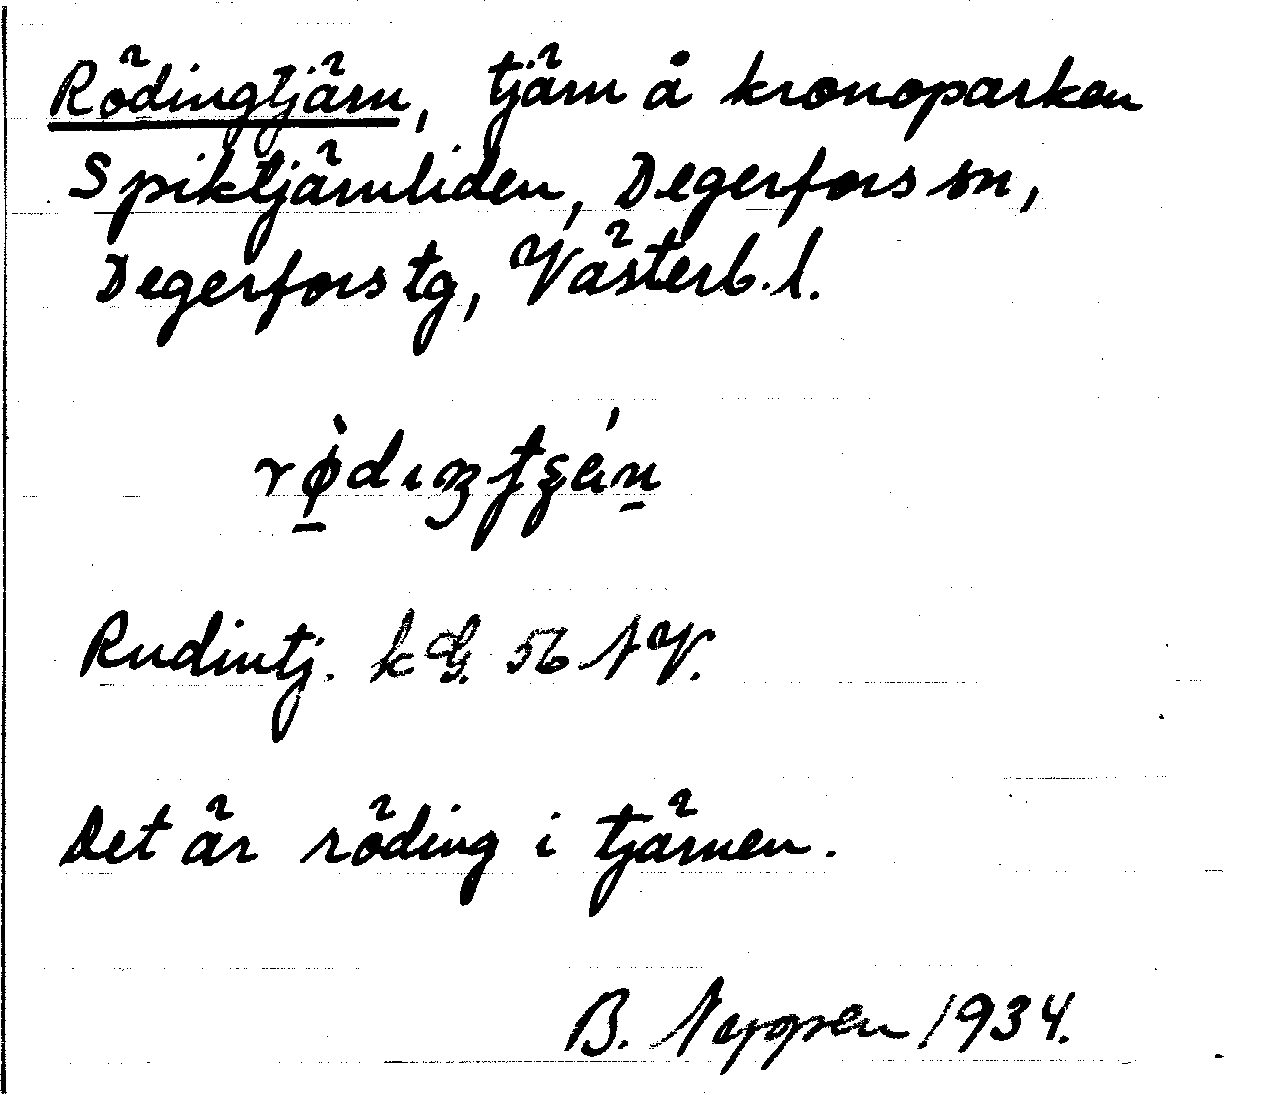 Rödingtjärn, tjärn å kronoparken
Spiktjärnliden, Degerfors sn,
Degerfors tg, Västerb. l.
Rudintj. k G. 56 NV.
Det är röding i tjärnen.
B. 1934.